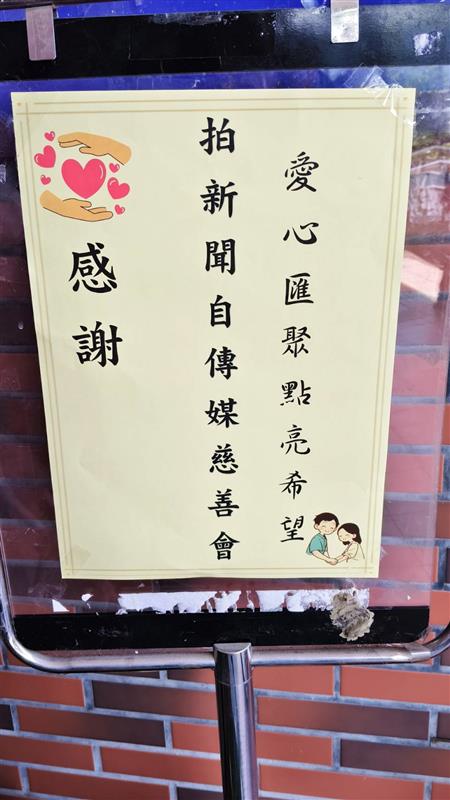 愛心匯聚點亮希望
拍新聞自傳媒慈善會
感謝